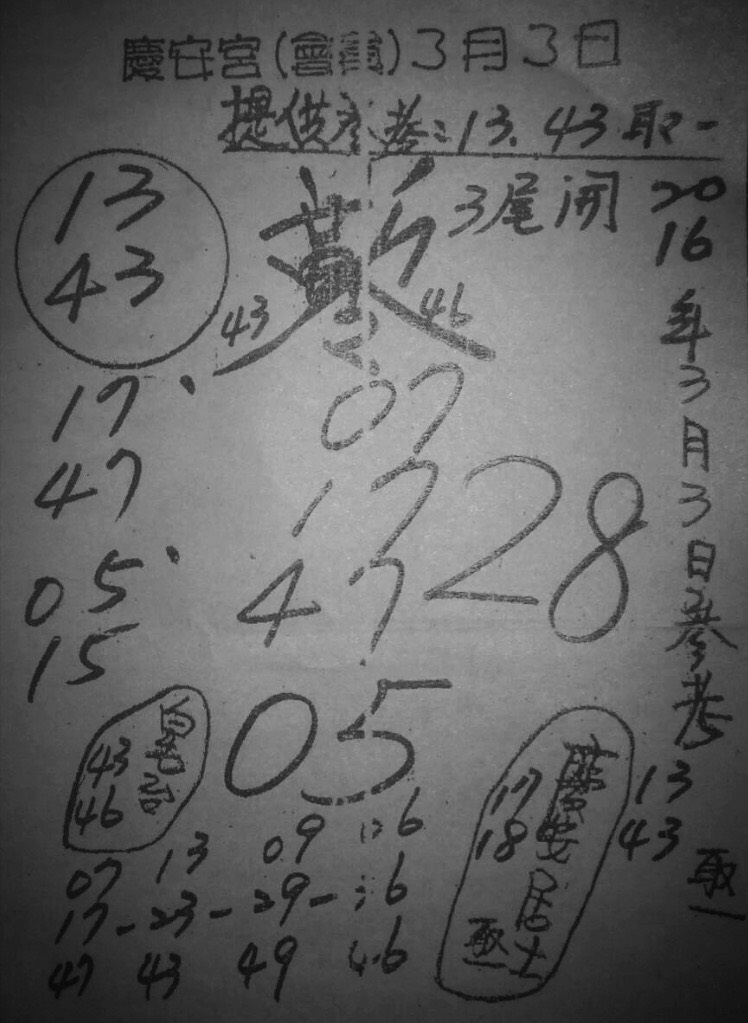 慶安宮(會員)3月3日
提供參考:13.43取一
3尾開
2016年3月3日參考
13
43
43
46
07
17
47
28
05
17
47
05
15
43
46
07 13 09
17-23-29-
47 43 49
慶安居士
17
18
取一
13
43
取一